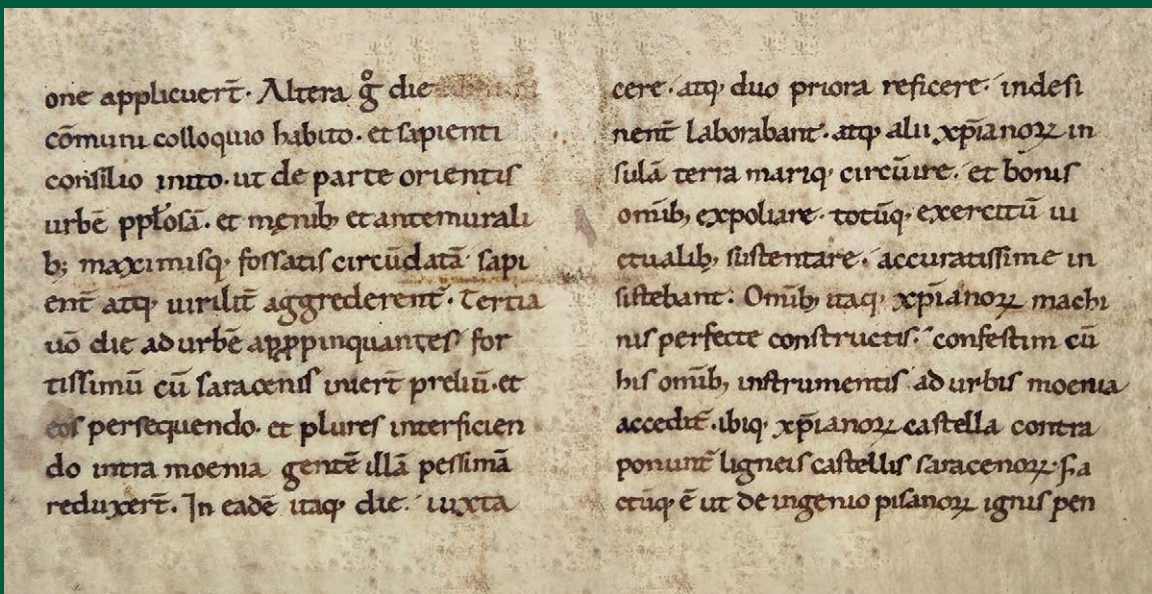 one applicuer̄t. Altera g̊ die
cōmuni colloquio habito. et sapienti
consilio inito. ut de parte orientis
urbē pp̄losā. et męnib; et antemurali
b; maximisq; fossatis circūdatā sapi
ent̄ atq; uirilit̄ aggrederent̄. Tertia
uō die ad urbē apꝓpinquantes for
tissimū cū saracenis inier̄t preliū. et
eos persequendo. et plures interficien
do intra moenia gentē illā pessimā
reduxer̄t. In eadē itaq; die. iuxta
cere. atq; duo priora reficere. indesi
nent̄ laborabant. atq; alii xp̄ianoꝝ in
sulā terra mariq; circūire. et bonis
omīb; expoliare. totūq; exercitū ui
ctualib; sustentare. accuratissime in
sistebant. Omīb; itaq; xp̄ianoꝝ machi
nis perfecte constructis. confestim cū
his omīb; instrumentis ad urbis moenia
accedit̄. ibiq; xp̄ianoꝝ castella contra
ponunt̄ ligneis castellis saracenoꝝ. Fa
ctūq; ē ut de ingenio pisanoꝝ ignis pen